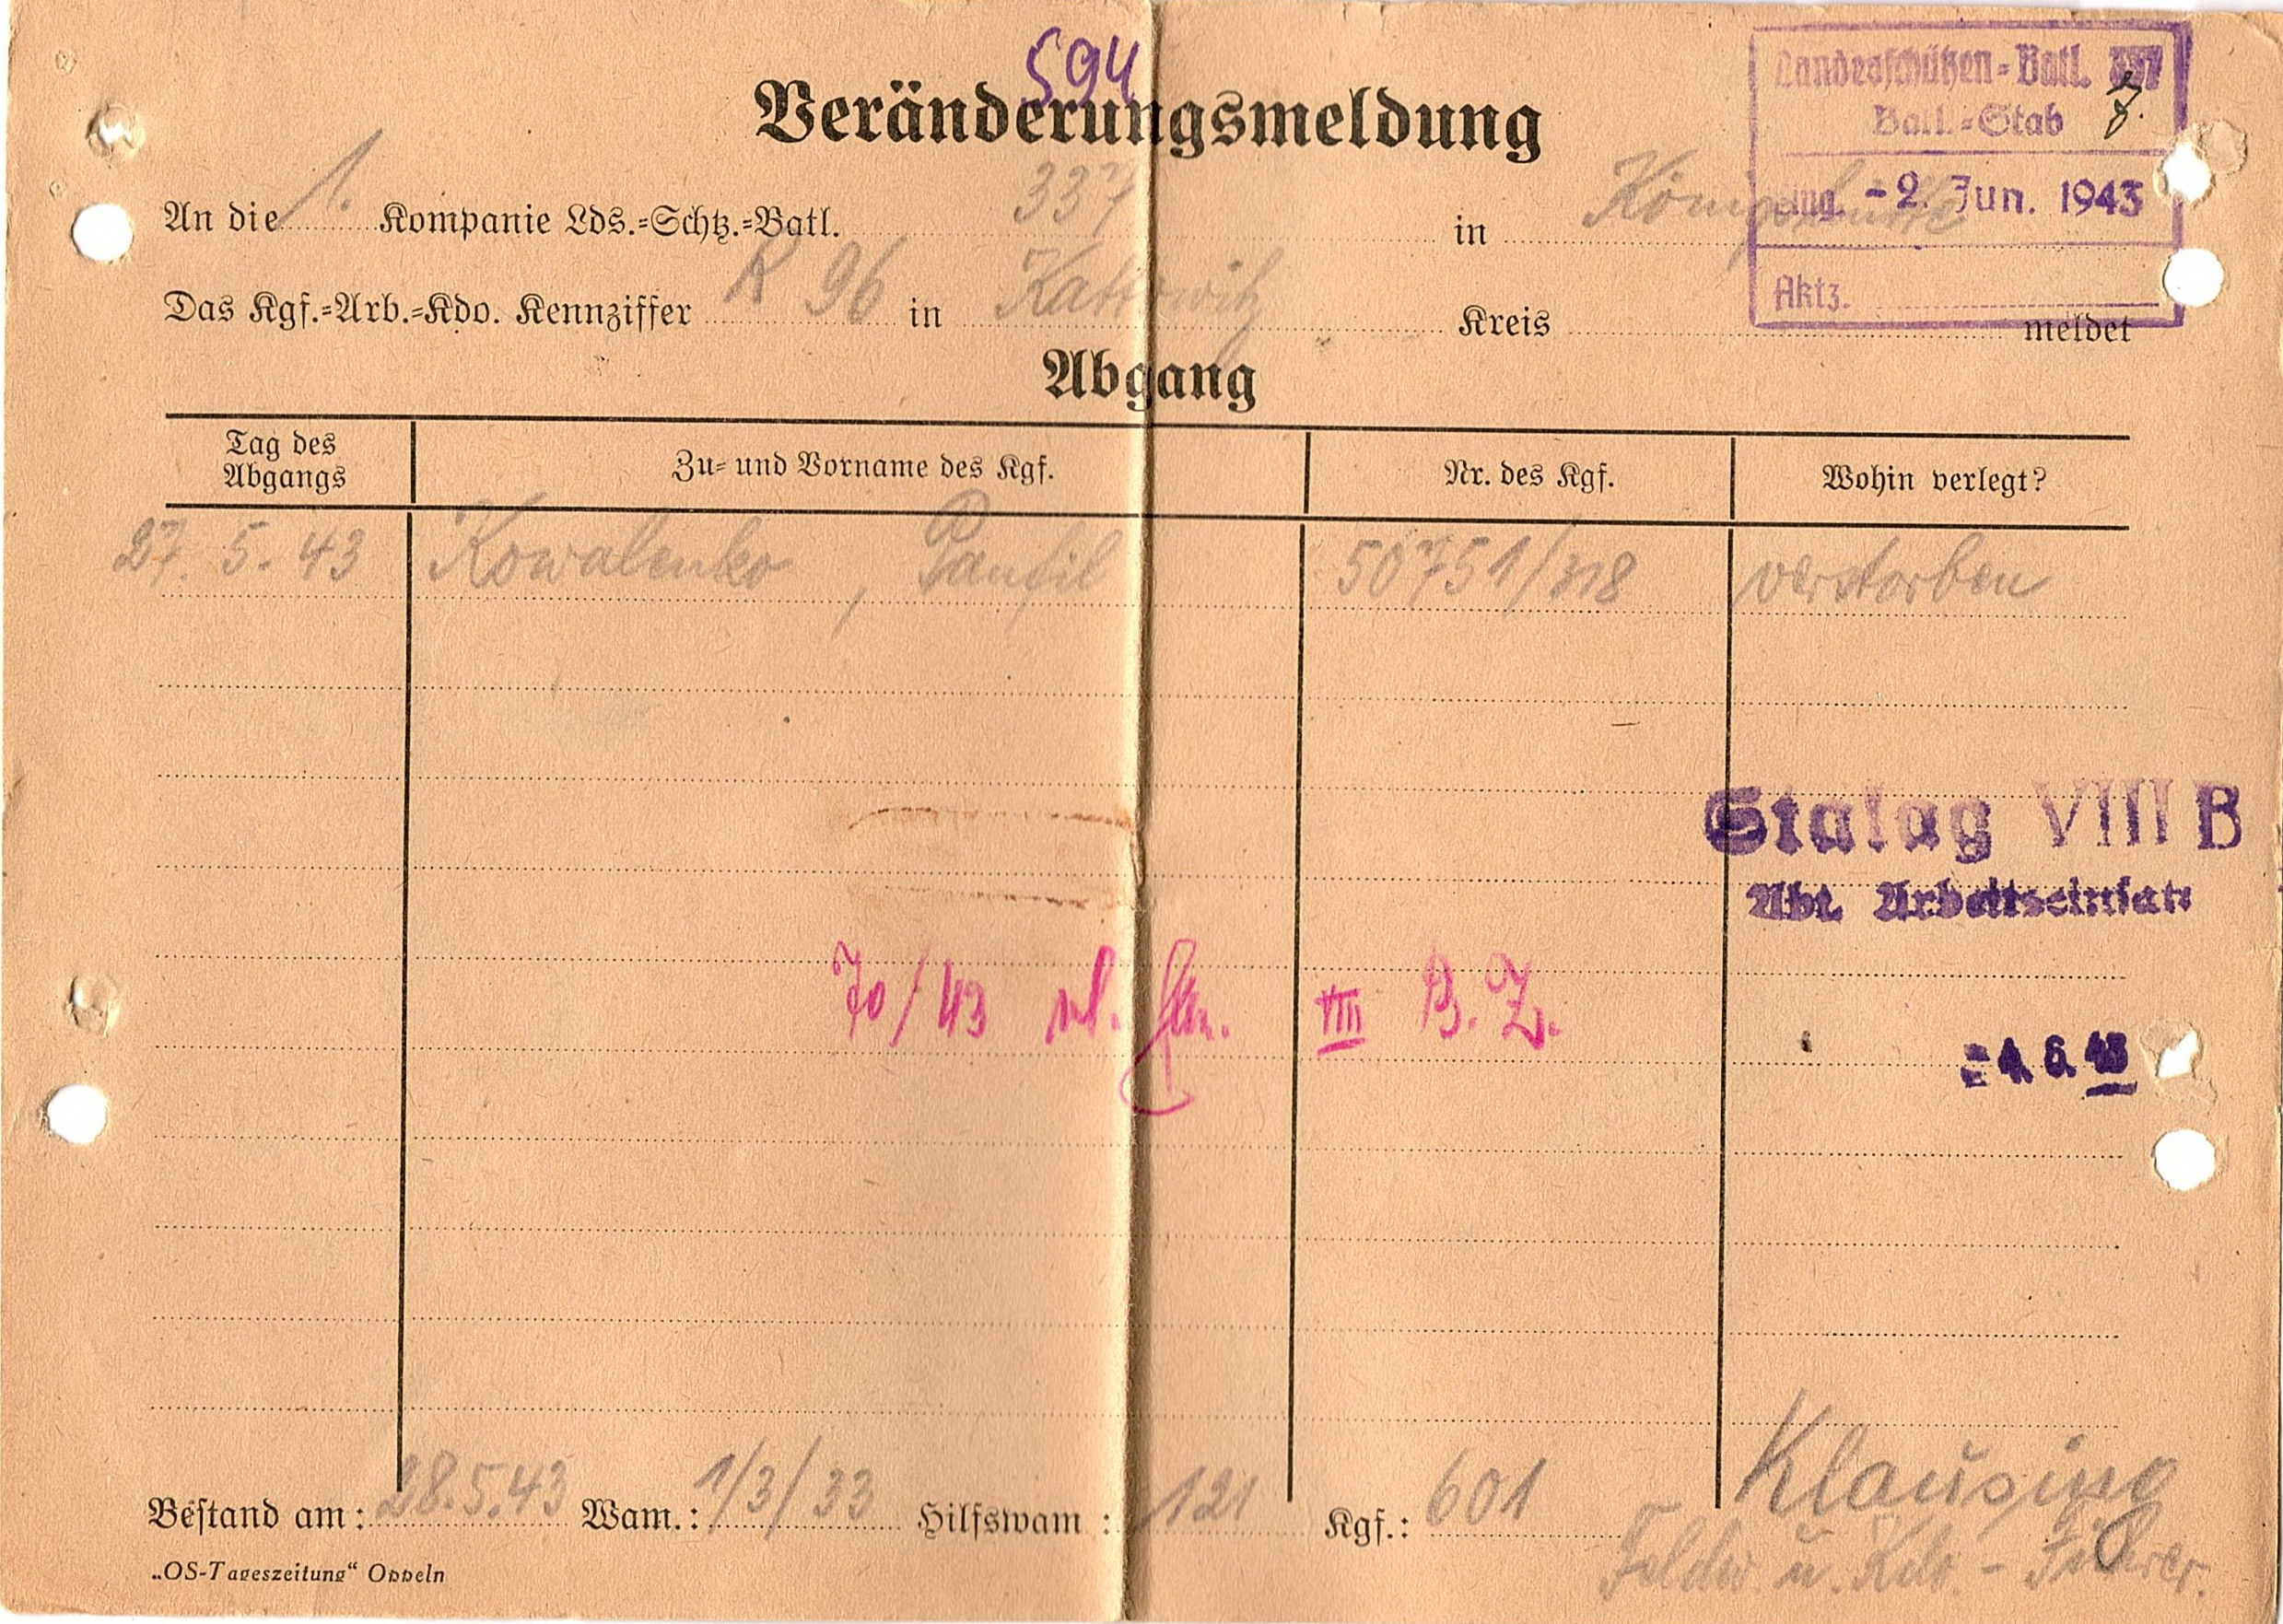 594
Veränderungsmeldung
Landesschützen-Batl. 337
Batl.-Stab
Eing. -2. Jun. 1943
Aktz.
An die 1. Kompanie Lds.-Schtz.-Batl. 337 in Königshütte
Das Kgf.-Arb.-Kdo. Kennziffer R 96 in Kattowitz Kreis meldet
Abgang
Tag des Abgangs Zu- und Vorname des Kgf. Nr. des Kgf. Wohin verlegt?
27. 5. 43 Kowalenko, Panfil 50751/318 verstorben
Stalag VIII B
Abt. Arbeitseinsatz
70/43 VIII B. Z.
- 4. 6. 43
Bestand am: 28.5.43 Wam.: 1/3/33 Hilfswam: 121 Kgf.: 601 Klausing
Feldw. u. Kdo.-Führer.
„OS-Tageszeitung“ Oppeln